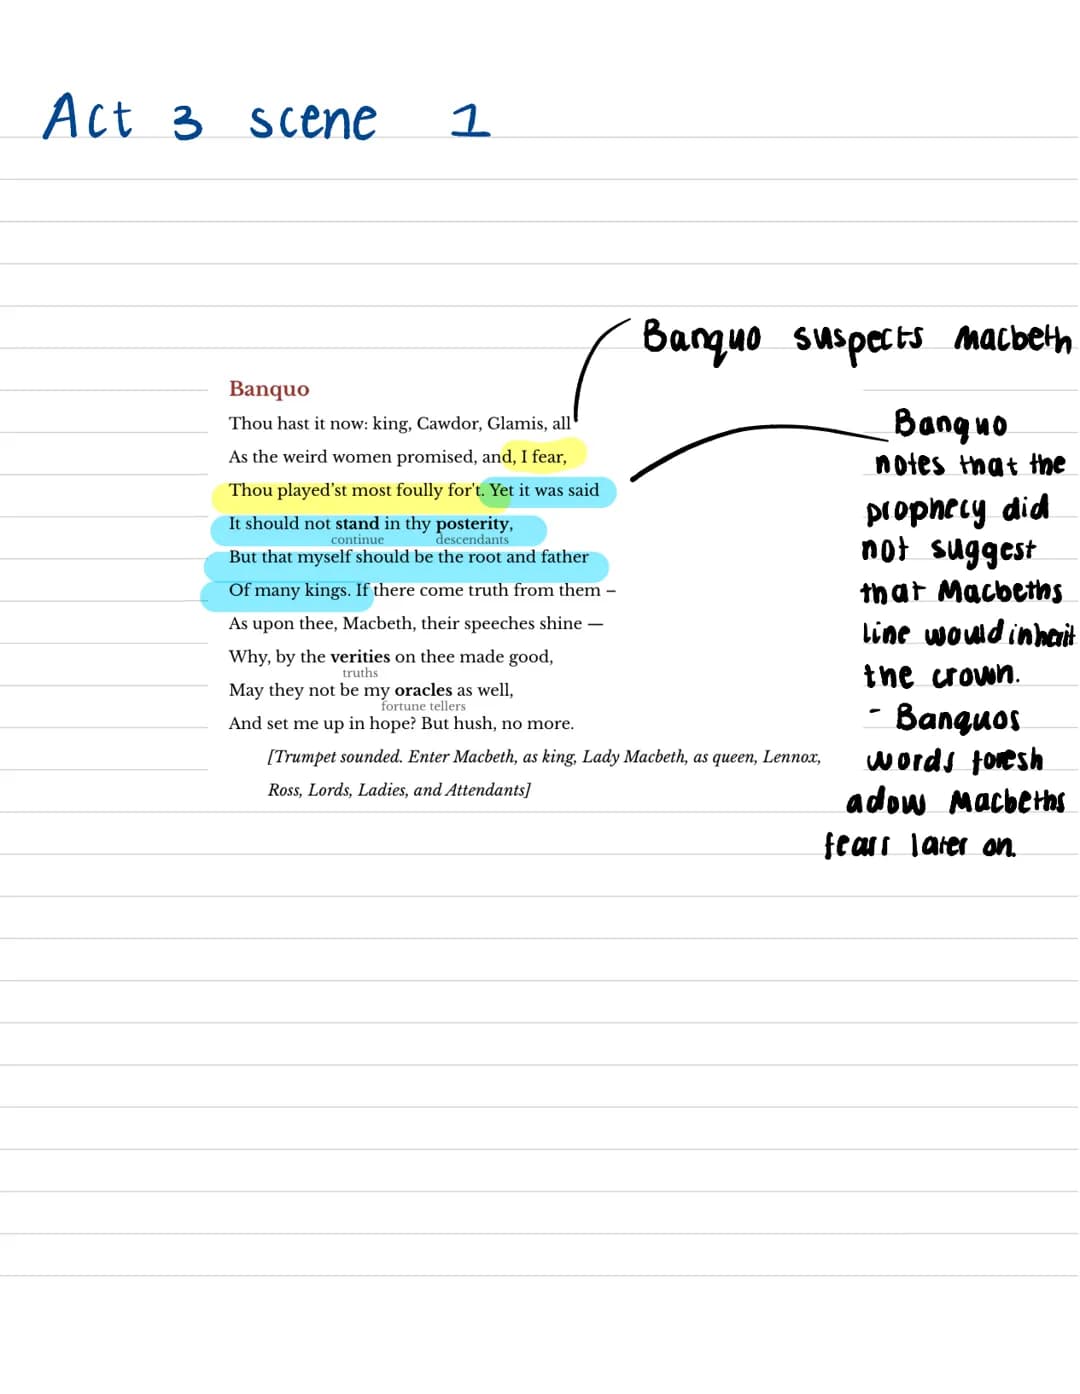 Act 3 scene 1
Banquo suspects macbeth
Banquo
Thou hast it now: king, Cawdor, Glamis, all
As the weird women promised, and, I fear,
Thou played'st most foully for't. Yet it was said
It should not stand in thy posterity,
continue descendants
But that myself should be the root and father
Of many kings. If there come truth from them –
As upon thee, Macbeth, their speeches shine —
Why, by the verities on thee made good,
truths
May they not be my oracles as well,
fortune tellers
And set me up in hope? But hush, no more.
[Trumpet sounded. Enter Macbeth, as king, Lady Macbeth, as queen, Lennox,
Ross, Lords, Ladies, and Attendants]
Banquo
notes that the
prophecy did
not suggest
that Macbeths
line would inherit
the crown.
- Banquos
words foresh
adow Macbeths
fears later on.